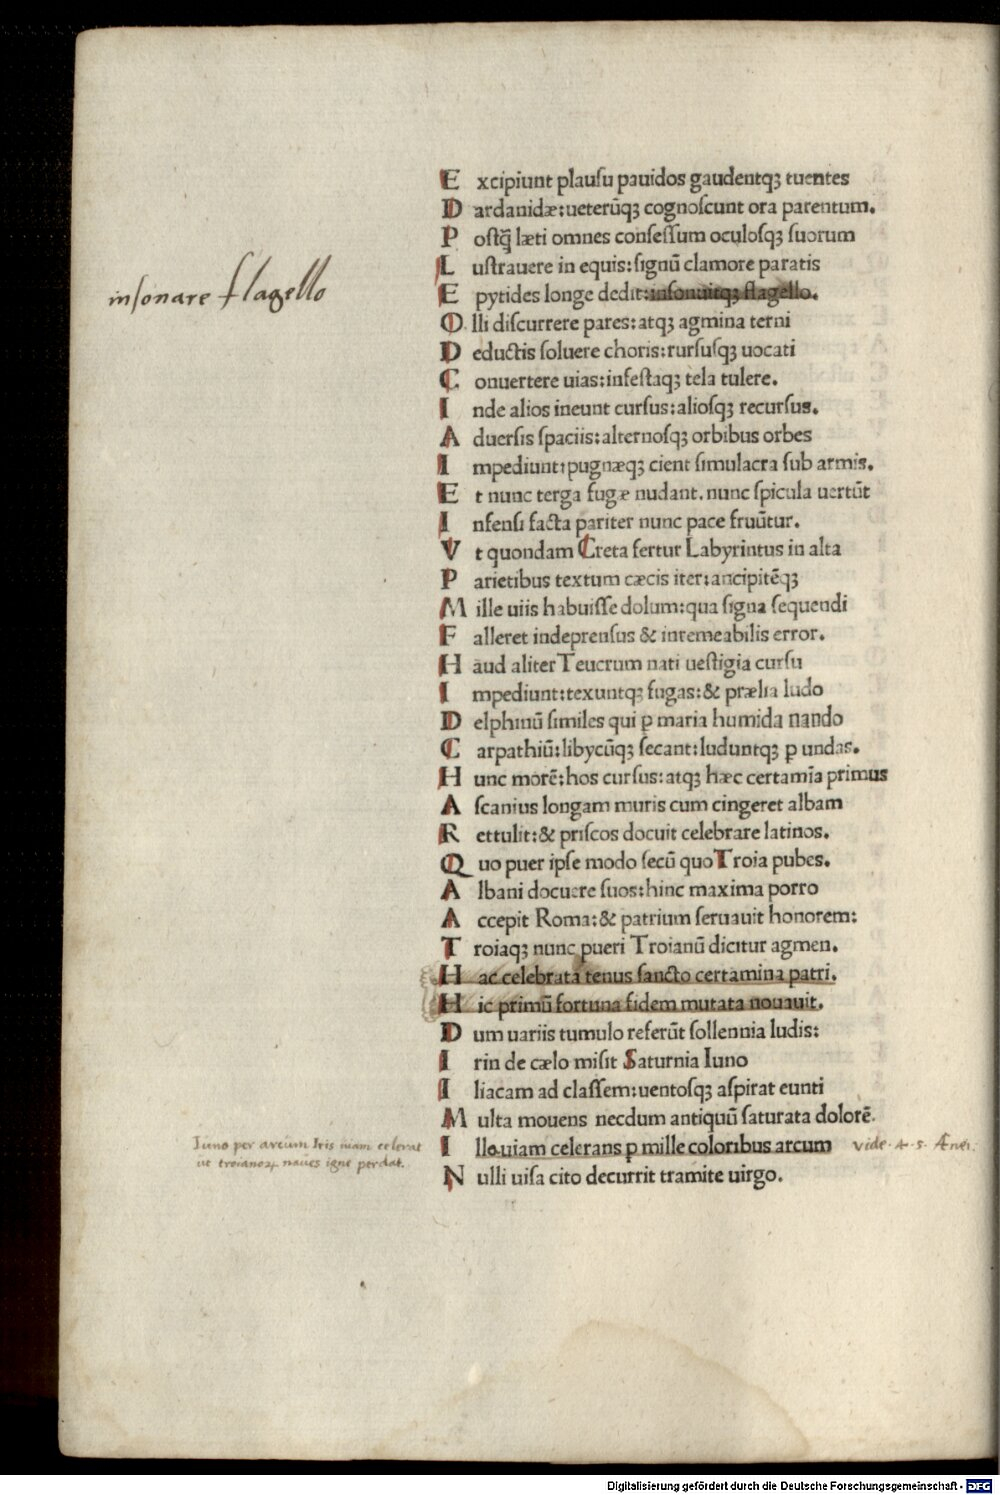 Excipiunt plauſu pauidos gaudentqꝫ tuentes
Dardanidæ:ueterūqꝫ cognoſcunt ora parentum.
Poſtꝗ̄ læti omnes conſeſſum oculoſqꝫ ſuorum
Luſtrauere in equis:ſignū clamore paratis
insonare flagello
Epytides longe dedit:inſonuitqꝫ flagello.
Olli diſcurrere pares:atqꝫ agmina terni
Deductis ſoluere choris:rurſuſqꝫ uocati
Conuertere uias:infeſtaqꝫ tela tulere.
Inde alios ineunt curſus:alioſqꝫ recurſus.
Aduerſis ſpaciis:alternoſqꝫ orbibus orbes
Impediunt:pugnæqꝫ cient ſimulacra ſub armis.
Et nunc terga fugæ nudant.nunc ſpicula uertūt
Infenſi facta pariter nunc pace fruūtur.
Vt quondam Creta fertur Labyrintus in alta
Parietibus textum cæcis iter:ancipitēqꝫ
Mille uiis habuiſſe dolum:qua ſigna ſequendi
Falleret indeprenſus & inremeabilis error.
Haud aliter Teucrum nati ueſtigia curſu
Impediunt:texuntqꝫ fugas:& prælia ludo
Delphinū ſimiles qui ꝑ maria humida nando
Carpathiū:libycūqꝫ ſecant:luduntqꝫ ꝑ undas.
Hunc morē:hos curſus:atqꝫ hæc certamīa primus
Aſcanius longam muris cum cingeret albam
Rettulit:& priſcos docuit celebrare latinos.
Quo puer ipſe modo ſecū quo Troia pubes.
Albani docuere ſuos:hinc maxima porro
Accepit Roma:& patrium ſeruauit honorem:
Troiaqꝫ nunc pueri Troianū dicitur agmen.
Hac celebrata tenus ſancto certamina patri.
Hic primū fortuna fidem mutata nouauit.
Dum uariis tumulo referūt ſollennia ludis:
Irin de cælo miſit Saturnia Iuno
Iliacam ad claſſem:uentoſqꝫ aſpirat eunti
Multa mouens necdum antiquū ſaturata dolorē.
Iuno per arcum Iris uiam celerat
ut troianoꝝ naues igne perdat.
Illa uiam celerans ꝑ mille coloribus arcum vide. 4. 5. Ænei:
Nulli uiſa cito decurrit tramite uirgo.
Digitalisierung gefördert durch die Deutsche Forschungsgemeinschaft - DFG